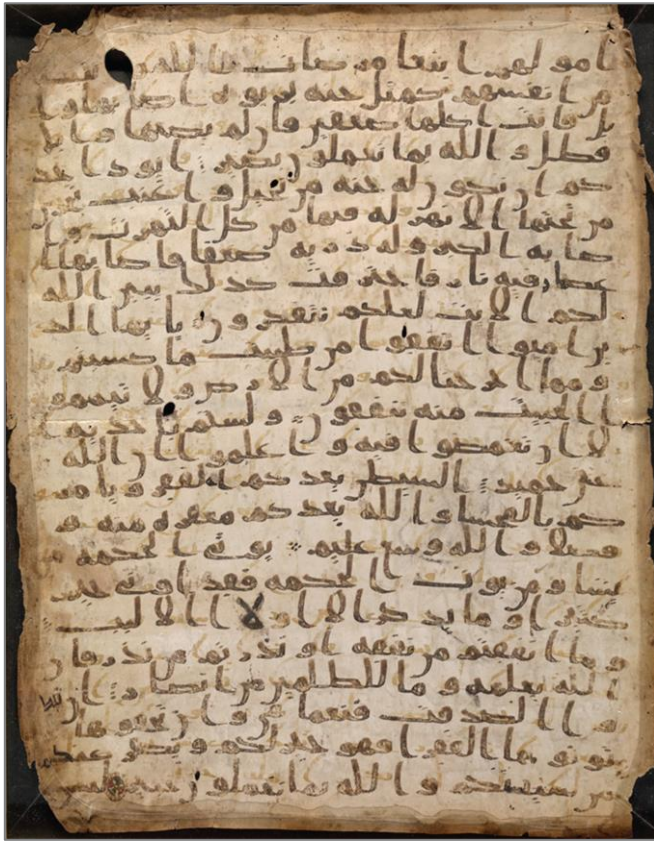 ا مولهم ابتغا مرضات الله و تثبيتا
من انفسهم كمثل جنه بربوه اصابها وا
بل فاتت اكلها ضعفين فان لم يصبها وابل
فطل و الله بما تعملون بصير ايود احد
كم ان تكون له جنه من نخيل و اعنب تجري
من تحتها الانهر له فيها من كل الثمرت وا
صابه الكبر وله ذريه ضعفا فاصابها ا
عصار فيه نار فاحترقت كذلك يبين الله
لكم الايت لعلكم تتفكرون يايها الذ
ين امنوا انفقوا من طيبت ما كسبتم
و مما اخرجنا لكم من الارض و لا تيممو
ا الخبيث منه تنفقون و لستم باخذيه ا
لا ان تغمضوا فيه و اعلموا ان الله
غني حميد الشيطن يعدكم الفقر و يامر
كم بالفحشا و الله يعدكم مغفره منه و
فضلا و الله وسع عليم يوتي الحكمه من
يشا و من يوت الحكمه فقد اوتي خيرا
كثيرا و ما يذكر الا اولوا الالبب
و ما انفقتم من نفقه او نذرتم من نذر فان
الله يعلمه و ما للظلمين من انصار ان تبد
وا الصدقت فنعما هي و ان تخفوها و
توتوها الفقرا فهو خير لكم و يكفر عنكم
من سيتكم و الله بما تعملون خبير ليس